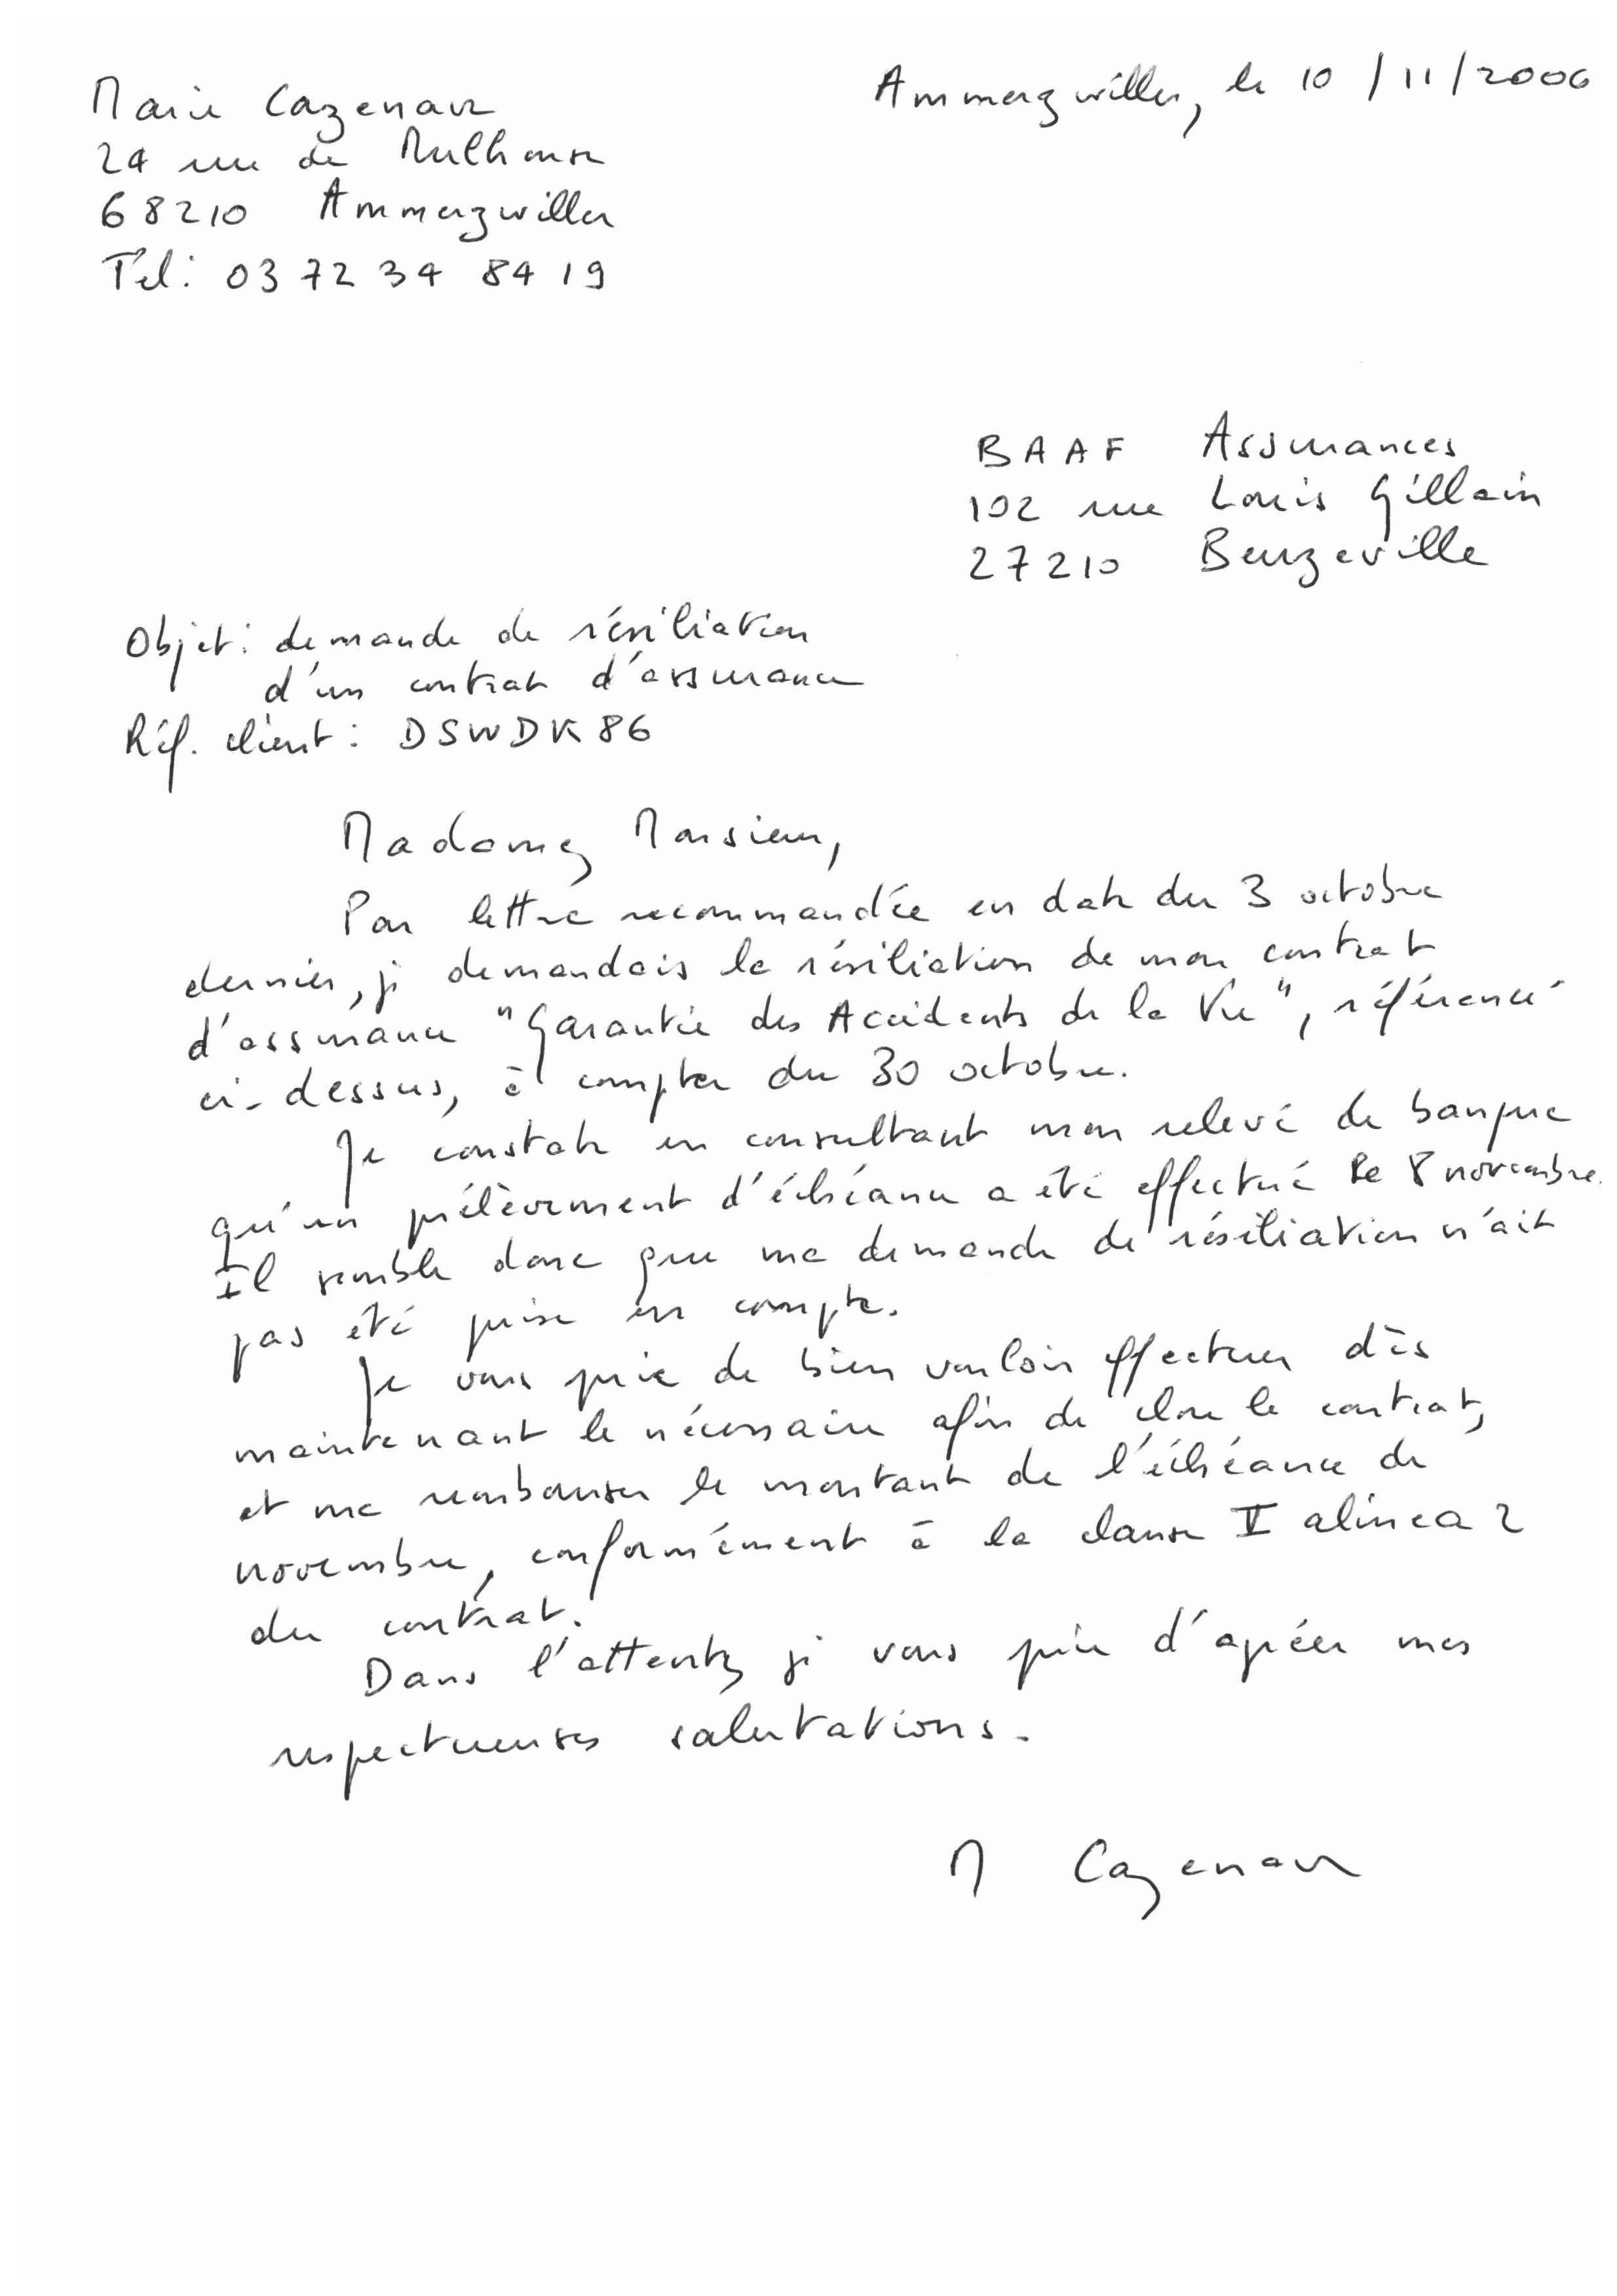 Marie Cazenave
24 rue de Mulhouse
68210 Ammerzwiller
Tél: 03 72 34 84 19
Ammerzwiller, le 10/11/2006
BAAF Assurances
102 rue Louis Gillain
27210 Beuzeville
Objet: demande de résiliation
d'un contrat d'assurance
Réf. client: DSWDK86
Madame, Monsieur,
Par lettre recommandée en date du 3 octobre
dernier, je demandais la résiliation de mon contrat
d'assurance "Garantie des Accidents de la Vie", référencé
ci-dessus, à compter du 30 octobre.
Je constate en consultant mon relevé de banque
qu'un prélèvement d'échéance a été effectué le 8 novembre.
Il semble donc que ma demande de résiliation n'ait
pas été prise en compte.
Je vous prie de bien vouloir effectuer dès
maintenant le nécessaire afin de clore le contrat,
et me rembourser le montant de l'échéance de
novembre, conformément à la clause V alinea 2
du contrat.
Dans l'attente, je vous prie d'agréer mes
respectueuses salutations.
M Cazenave